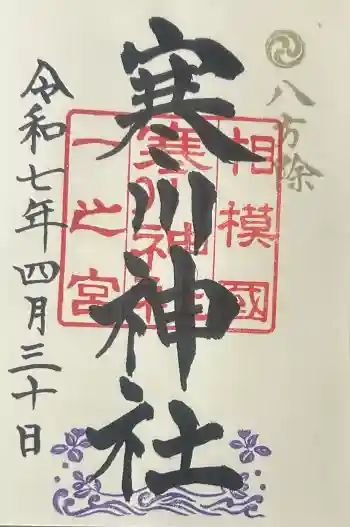 八方除
相模國
寒川神社
一之宮
寒川神社
令和七年四月三十日